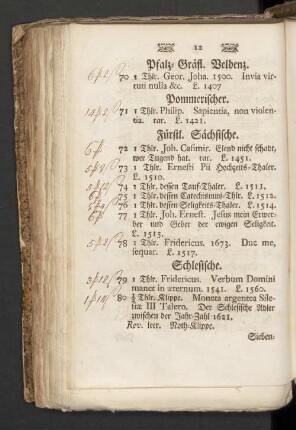 12
Pfalz-Gräfl. Veldenz.
70 1 Thlr. Geor. Joha. 1500. Invia vir-
tuti nulla &c. L. 1407
Pommerischer.
71 1 Thlr. Philip. Sapientia, non violen-
tia. rar. L. 1421.
Fürstl. Sächsische.
72 1 Thlr. Joh. Casimir. Elend nicht schadt,
wer Tugend hat. rar. L. 1451.
73 1 Thlr. Ernesti Pii Hochzeits-Thaler.
L. 1510.
74 1 Thlr. dessen Tauf-Thaler. L. 1511.
75 1 Thlr. dessen Catechismus-Thlr. L. 1512.
76 1 Thlr. dessen Seligkeits-Thaler. L. 1514.
77 1 Thlr. Joh. Ernest. Jesus mein Erwer-
ber und Geber der ewigen Seligkeit.
L. 1515.
78 1 Thlr. Fridericus. 1673. Duc me,
sequar. L. 1517.
Schlesische.
79 1 Thlr. Fridericus. Verbum Domini
manet in æternum. 1541. L. 1560.
80 Thlr. Klippe. Moneta argentea Sile-
siæ III Talero. Der Schlesische Adler
zwischen der Jahr-Zahl 1621.
Rev. leer. Noth-Klippe.
Sieben-